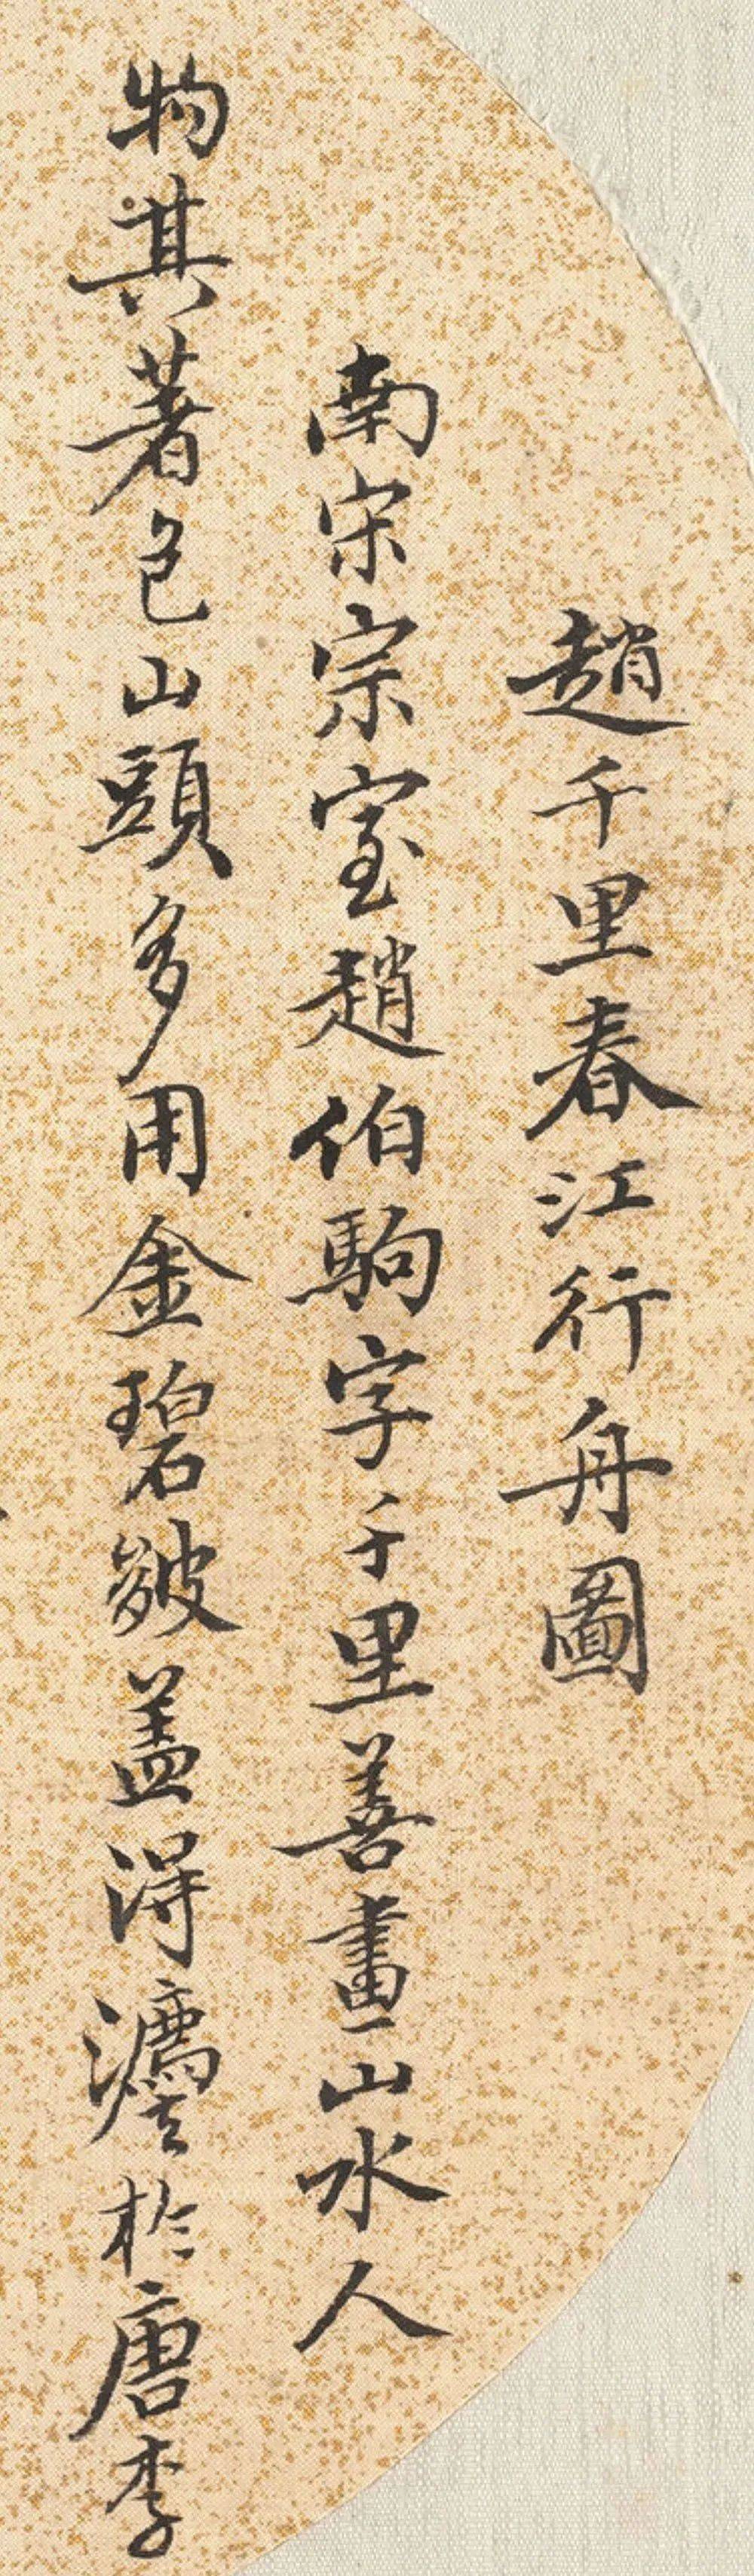 趙千里春江行舟圖
南宋宗室趙伯駒字千里善畫山水人
物其著色山頭多用金碧皴盖得灋於唐李